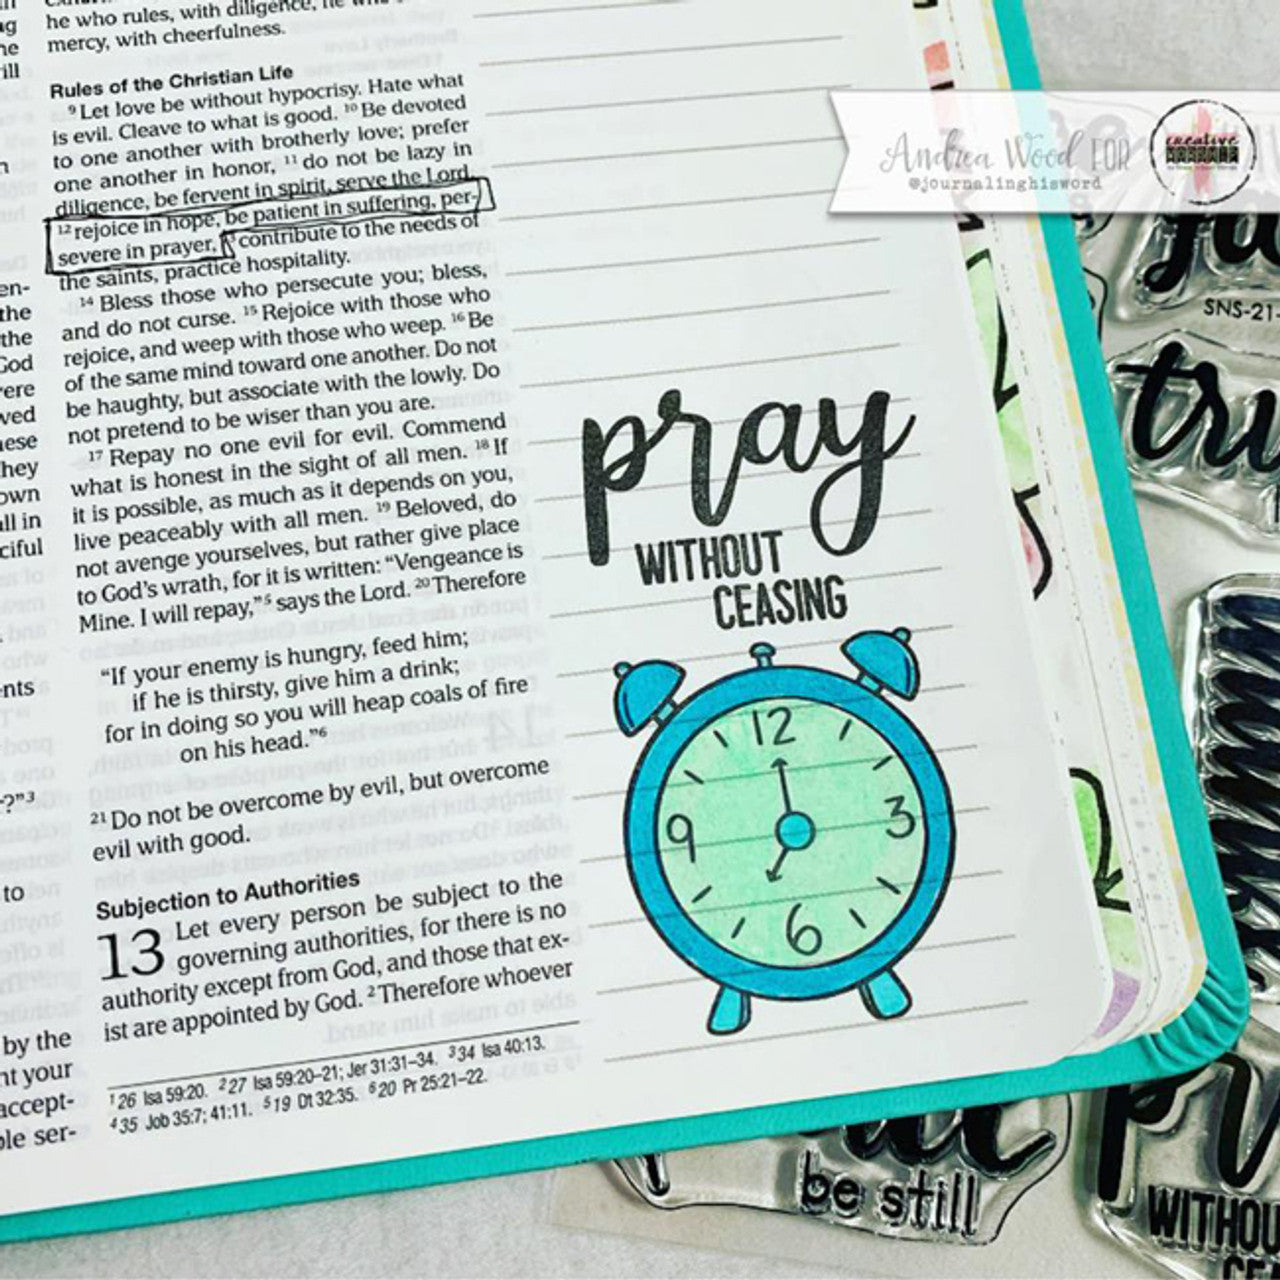 he who rules, with diligence, he who
mercy, with cheerfulness.
Rules of the Christian Life
9 Let love be without hypocrisy. Hate what
is evil. Cleave to what is good. 10 Be devoted
to one another with brotherly love; prefer
one another in honor, 11 do not be lazy in
diligence, be fervent in spirit, serve the Lord,
12 rejoice in hope, be patient in suffering, per-
severe in prayer, 13 contribute to the needs of
the saints, practice hospitality.
14 Bless those who persecute you; bless,
and do not curse. 15 Rejoice with those who
rejoice, and weep with those who weep. 16 Be
of the same mind toward one another. Do not
be haughty, but associate with the lowly. Do
not pretend to be wiser than you are.
17 Repay no one evil for evil. Commend
what is honest in the sight of all men. 18 If
it is possible, as much as it depends on you,
live peaceably with all men. 19 Beloved, do
not avenge yourselves, but rather give place
to God's wrath, for it is written: “Vengeance is
Mine. I will repay,”5 says the Lord. 20 Therefore
“If your enemy is hungry, feed him;
if he is thirsty, give him a drink;
for in doing so you will heap coals of fire
on his head.”6
21 Do not be overcome by evil, but overcome
evil with good.
Subjection to Authorities
13 Let every person be subject to the
governing authorities, for there is no
authority except from God, and those that ex-
ist are appointed by God. 2 Therefore whoever
1 26 Isa 59:20. 2 27 Isa 59:20–21; Jer 31:31–34. 3 34 Isa 40:13.
4 35 Job 35:7; 41:11. 5 19 Dt 32:35. 6 20 Pr 25:21–22.
the
the
God
to
by the
your
accept-
pray
WITHOUT
CEASING
12
9 3
6
Andrea Wood FOR
@journalinghisword
creative
SNS-21-
be still